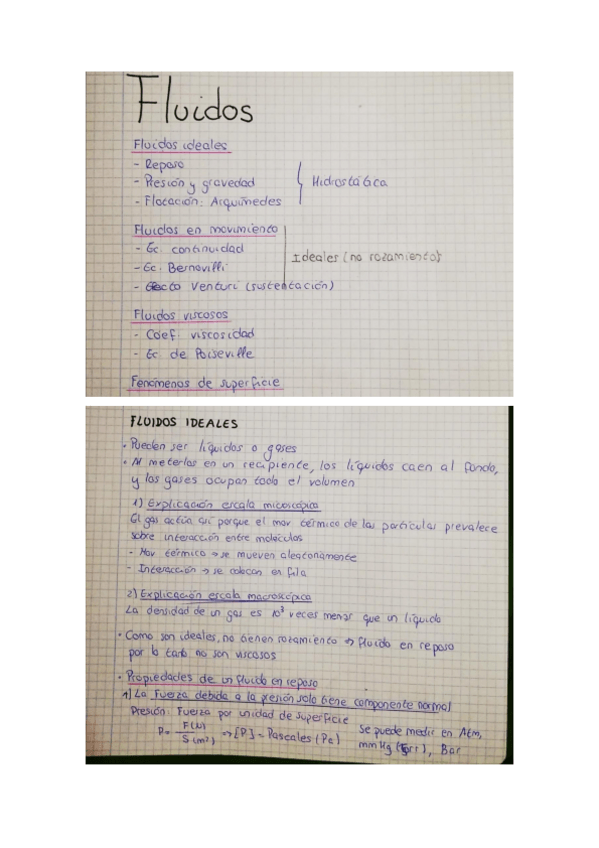 Fluidos
Fluidos ideales
- Reposo
- Presión y gravedad
- Flotación: Arquímedes
Hidrostática
Fluidos en movimiento
- Ec. continuidad
- Ec. Bernouilli
- Efecto Venturi (sustentación)
Ideales (no rozamiento)
Fluidos viscosos
- Coef. viscosidad
- Ec de Poiseville
Fenómenos de superficie
FLUIDOS IDEALES
• Pueden ser líquidos o gases
• Al meterlos en un recipiente, los líquidos caen al fondo,
y los gases ocupan todo el volumen
1) Explicación escala microscópica
El gas actúa así porque el mov térmico de las partículas prevalece
sobre interacción entre moléculas
- Mov térmico → se mueven aleatoriamente
- Interacción → se colocan en fila
2) Explicación escala macroscópica
La densidad de un gas es 10³ veces menor que un líquido
• Como son ideales, no tienen rozamiento → fluido en reposo
por lo tanto no son viscosos
• Propiedades de un fluido en reposo
1) La Fuerza debida a la presión solo tiene componente normal
Presión: Fuerza por unidad de superficie
P = F(N) / S(m²) → [P] = Pascales (Pa)
Se puede medir en Atm,
mmHg (Torr), Bar